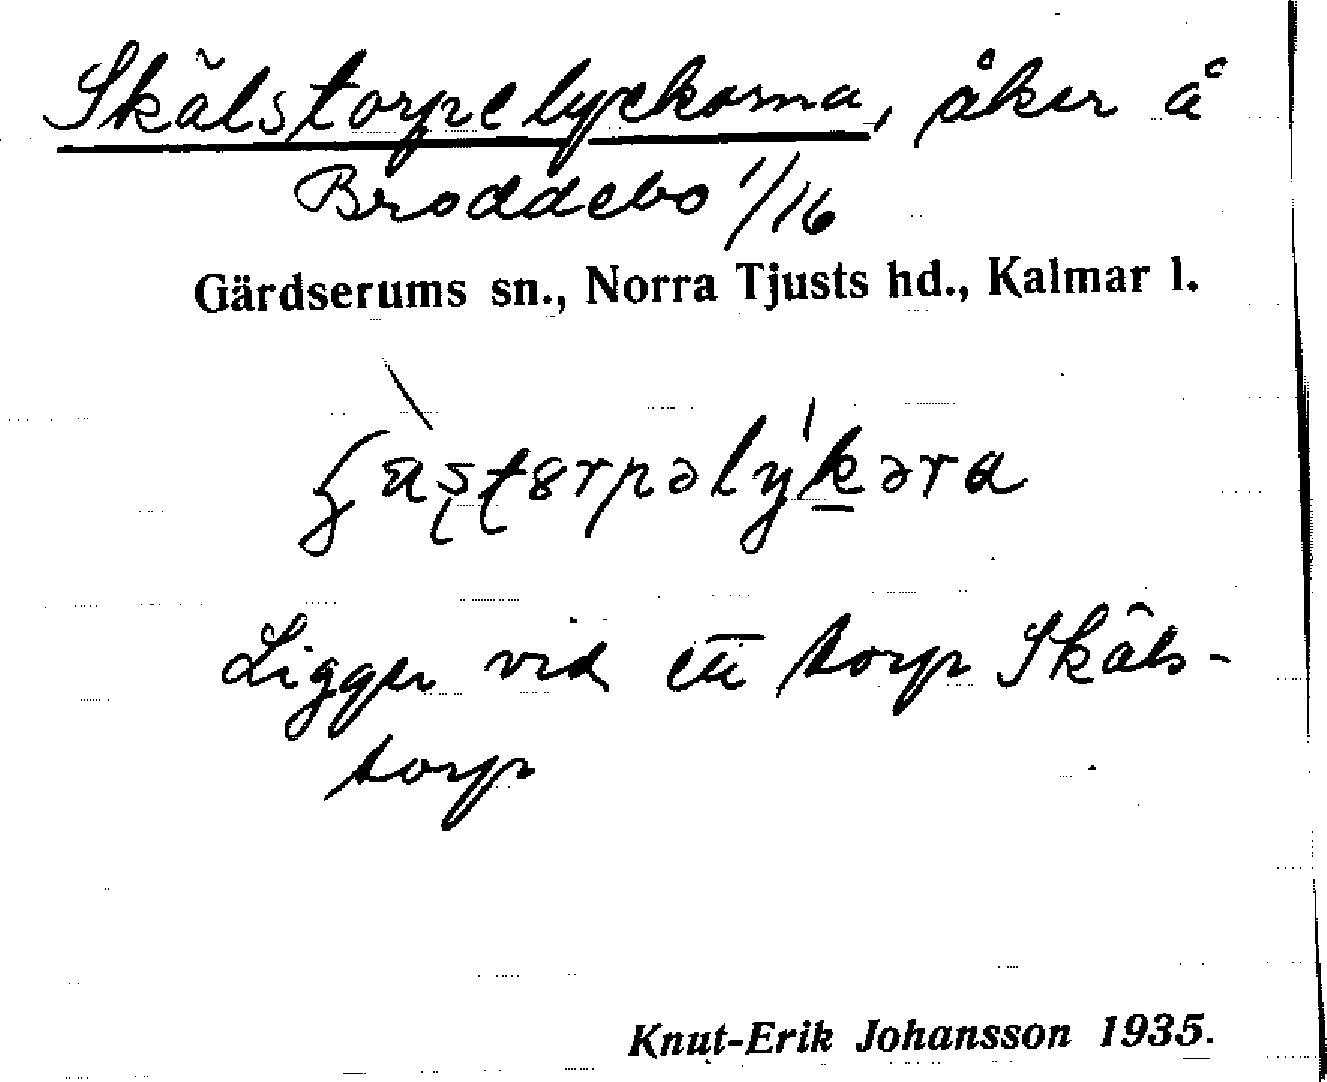 Skälstorpelyckorna, åker å
Broddebo 1/16
Gärdserums sn., Norra Tjusts hd., Kalmar l.
Ligger vid ett torp Skäls-
torp
Knut-Erik Johansson 1935.